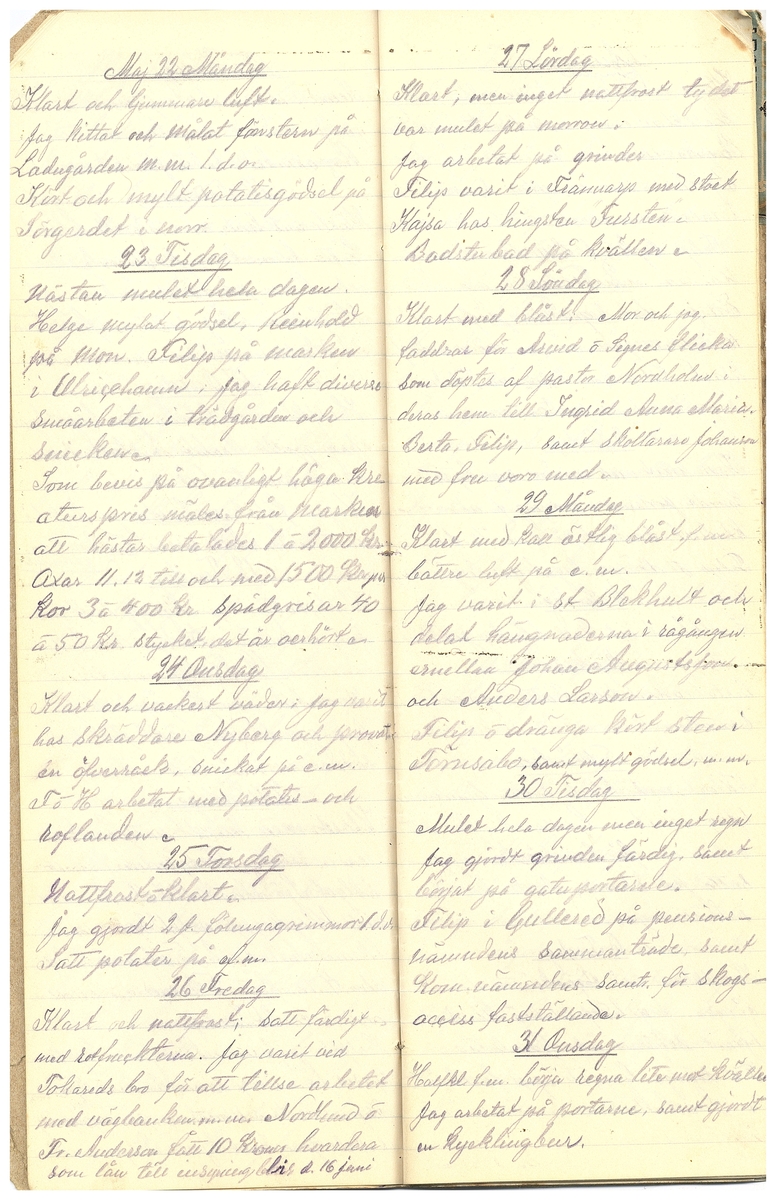 Maj 22 Måndag
Klart och ljummare luft.
Jag kittat och målat fönstern på
Ladugården m.m. l.d.v.
Kört och mylt potatisgödsel på
Törgerdet i norr.
23 Tisdag
Nästan mulet hela dagen.
Helge mylat gödsel, Reinhold
på mon. Filip på marken
i Ulricehamn, jag haft diverse
småarbeten i trädgården och
snickeri.
Som bevis på ovanligt höga kre
aturspris mäles från marken
att hästar betalades 1 à 2000 Kr.
Oxar 11.12 till och med 1500 Kr par
Kor 3 à 400 kr. Spädgrisar 40
à 50 Kr. stycket, det är oerhört.
24 Onsdag
Klart och vackert väder; jag varit
has skräddare Nyberg och provat
en öfverrock, snickat på e.m.
F o H arbetat med potates- och
roflanden.
25 Torsdag
Nattfrost o klart.
Jag gjordt 2 f. fölungagrimmor l.d.v.
Satt potater på e.m.
26 Fredag
Klart och nattfrost; satt färdigt
med rotfrukterna. Jag varit vid
Tohareds bro för att tillse arbetet
med vägbanken m.m. Nordlund o
Fr. Anderson fått 10 Kronor hvardera
som lån till d. 16 juni
27 Lördag
Klart, men inget nattfrost ty det
var mulet på morron.
Jag arbetat på grinder
Filip varit i Frännarp med stoet
Kajsa has hingsten Fursten.
Badstubad på kvällen.
28 Söndag
Klart med blåst. Mor och jag
faddrar för Arvid o Signes flicka
som döptes af pastor Nordholm i
deras hem till Ingrid Anna Maria.
Berta, Filip, samt skollärare Johanson
med fru voro med.
29 Måndag
Klart med kall östlig blåst f.m.
bättre luft på e.m.
Jag varit i St Blekhult och
delat hängnaderna i rågången
emellan Johan Augustsson
och Anders Larson.
Filip o dränga kört sten i
Törnsabo, samt mylt gödsel, m.m.
30 Tisdag
Mulet hela dagen men inget regn
Jag gjordt grinden färdig, samt
börjat på gatuportarne.
Filip i Gullered på pensions-
nämndens sammanträde, samt
Kom. nämndens samtr. för skogs-
accies fastställande.
31 Onsdag
Halfkl f.m. börja regna lite mot kvällen
Jag arbetat på portarne, samt gjordt
en kycklingbur.